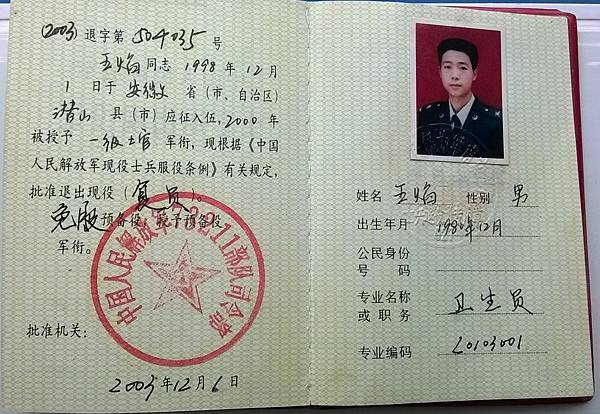 (2003) 退字第 504035 号
王焰 同志 1998 年 12 月
1 日于 安徽 省(市、自治区)
潜山 县(市)应征入伍, 2000 年
被授予 一级士官 军衔,现根据《中国
人民解放军现役士兵服役条例》有关规定,
批准退出现役(复员)。
免服预备役,授予预备役
军衔。
批准机关:
2003 年 12 月 6 日
中国人民解放军 部队司令部
姓名 王焰 性别 男
出生年月 1980年12月
公民身份
号 码
专业名称 卫生员
或 职 务
专业编码 L0103001